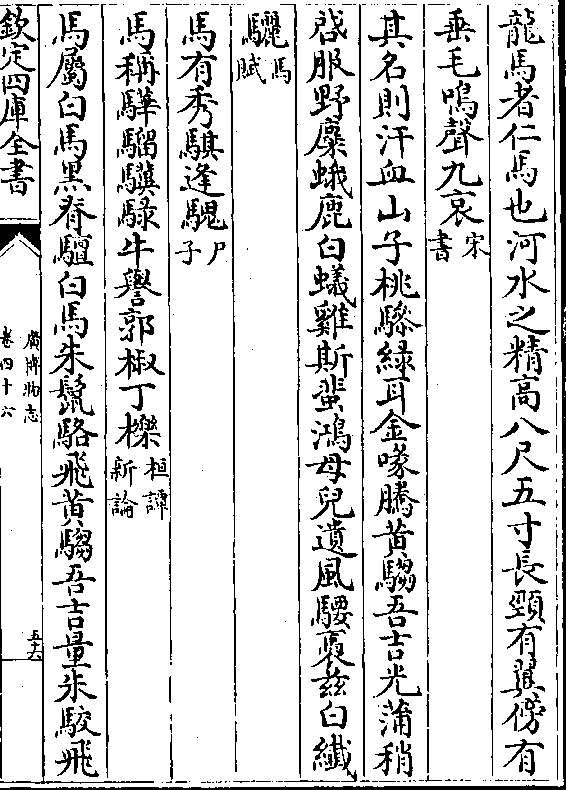 龍馬者仁馬也河水之精高八尺五寸長頸有翼傍有
垂毛鳴聲九哀宋書
其名則汗血山子桃騟緑耳金喙騰黄騶吾吉光蒲稍
啓服野麋蛾鹿白蟻雞斯蜚鴻母兒遺風騕褭兹白纎
驪馬賦
馬有秀騏逢騩尸子
馬稱驊騮驥騄牛譽郭椒丁櫟桓譚新論
馬屬白馬黒脊驙白馬朱鬛駱飛黄騶吾吉量朱駮飛
欽定四庫全書
廣博物志
卷四十六
五十六